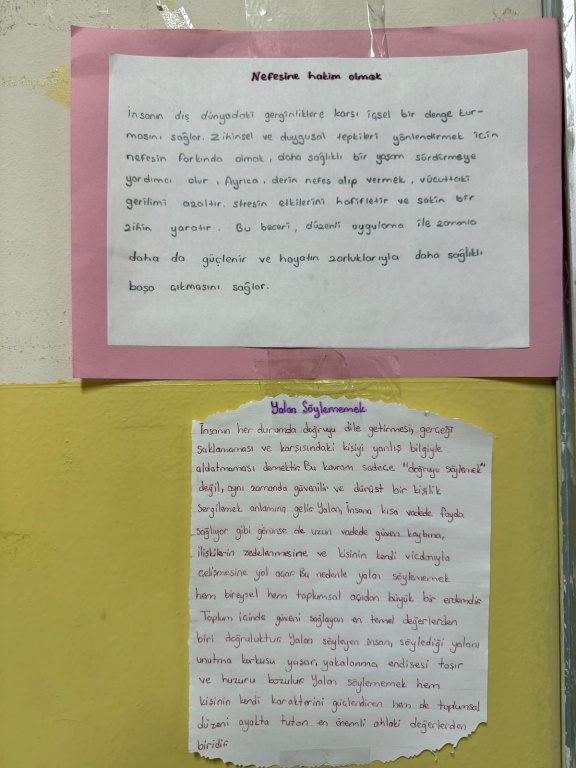 Nefesine hakim olmak
İnsanın dış dünyadaki gerginliklere karşı içsel bir denge kur-
masını sağlar. Zihinsel ve duygusal tepkileri yönlendirmek için
nefesin farkında olmak, daha sağlıklı bir yaşam sürdürmeye
yardımcı olur. Ayrıca, derin nefes alıp vermek, vücuttaki
gerilimi azaltır. stresin etkilerini hafifletir ve sakin bir
zihin yaratır. Bu beceri, düzenli uygulama ile zamanla
daha da güçlenir ve hayatın zorluklarıyla daha sağlıklı
başa çıkmasını sağlar.
Yalan Söylememek
İnsanın her durumda doğruyu dile getirmesi, gerçeği
saklamaması ve karşısındaki kişiyi yanlış bilgiyle
aldatmaması demektir. Bu kavram sadece "doğruyu söylemek"
değil, aynı zamanda güvenilir ve dürüst bir kişilik
sergilemek anlamına gelir. Yalan, insana kısa vadede fayda
sağlıyor gibi görünse de uzun vadede güven kaybına,
ilişkilerin zedelenmesine ve kişinin kendi vicdanıyla
çelişmesine yol açar. Bu nedenle yalan söylememek
hem bireysel hem toplumsal açıdan büyük bir erdemdir.
Toplum içinde güveni sağlayan en temel değerlerden
biri doğruluktur. Yalan söyleyen insan, söylediği yalanı
unutma korkusu yaşar, yakalanma endişesi taşır
ve huzuru bozulur. Yalan söylememek hem
kişinin kendi karakterini güçlendiren hem de toplumsal
düzeni ayakta tutan en önemli ahlaki değerlerden
biridir.